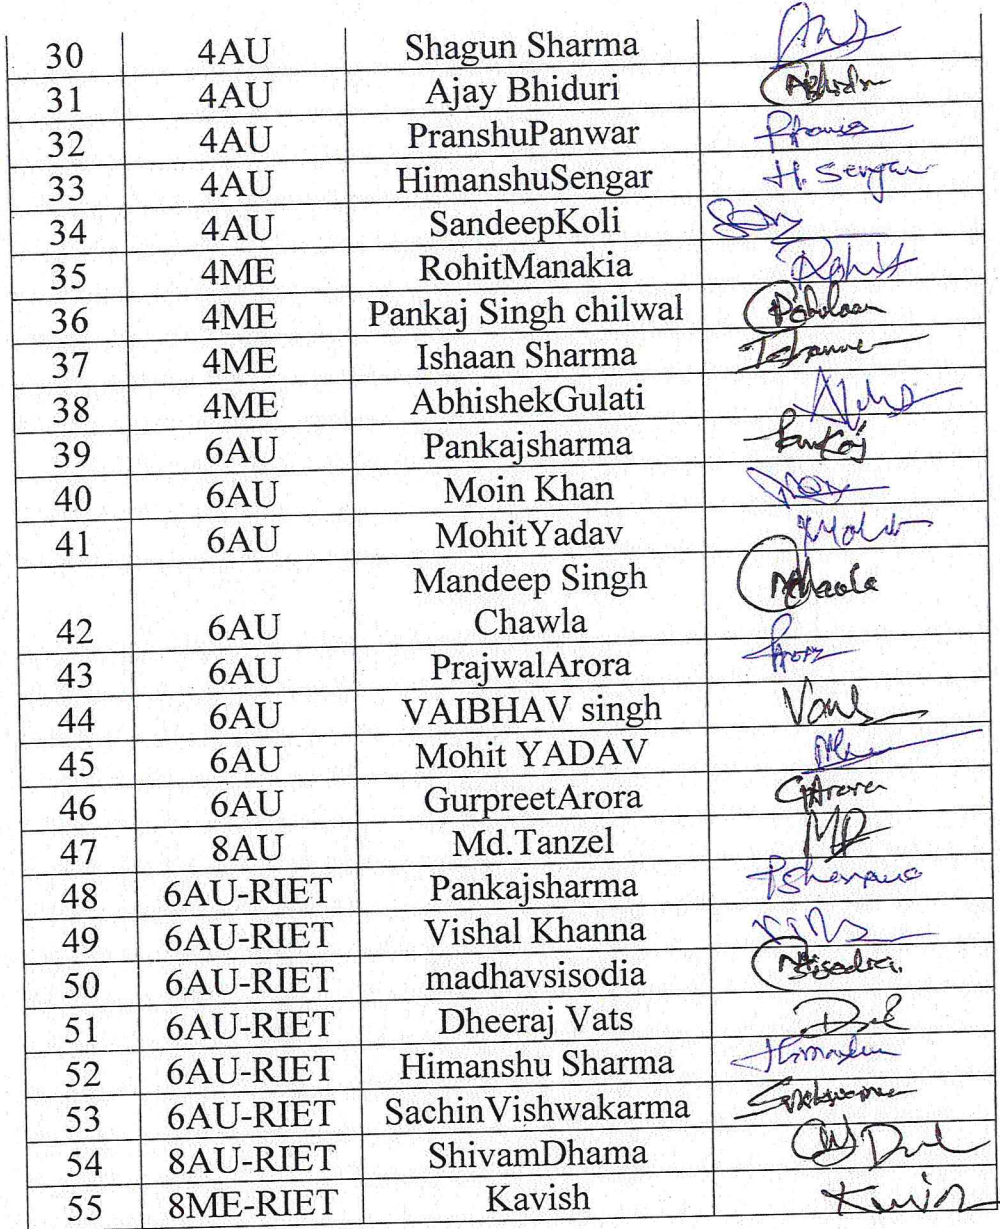 30 4AU Shagun Sharma
31 4AU Ajay Bhiduri
32 4AU PranshuPanwar
33 4AU HimanshuSengar H. Sengar
34 4AU SandeepKoli
35 4ME RohitManakia Rohit
36 4ME Pankaj Singh chilwal
37 4ME Ishaan Sharma
38 4ME AbhishekGulati
39 6AU Pankajsharma Pankaj
40 6AU Moin Khan
41 6AU MohitYadav Mohit
Mandeep Singh
42 6AU Chawla
43 6AU PrajwalArora
44 6AU VAIBHAV singh
45 6AU Mohit YADAV
46 6AU GurpreetArora GArora
47 8AU Md.Tanzel
48 6AU-RIET Pankajsharma
49 6AU-RIET Vishal Khanna
50 6AU-RIET madhavsisodia
51 6AU-RIET Dheeraj Vats
52 6AU-RIET Himanshu Sharma
53 6AU-RIET SachinVishwakarma
54 8AU-RIET ShivamDhama
55 8ME-RIET Kavish